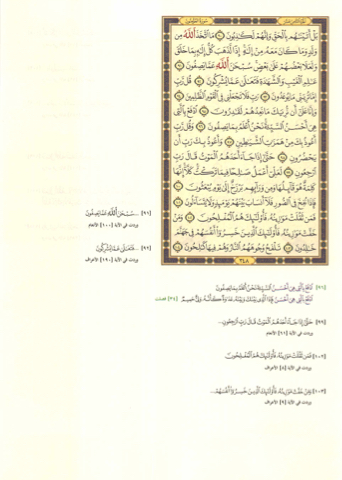 سورة المؤمنون
بَلْ أَتَيْنَٰهُم بِٱلْحَقِّ وَإِنَّهُمْ لَكَٰذِبُونَ ٩٠ مَا ٱتَّخَذَ ٱللَّهُ مِن
وَلَدٍ وَمَا كَانَ مَعَهُۥ مِنْ إِلَٰهٍ إِذًا لَّذَهَبَ كُلُّ إِلَٰهٍۭ بِمَا خَلَقَ
وَلَعَلَا بَعْضُهُمْ عَلَىٰ بَعْضٍ سُبْحَٰنَ ٱللَّهِ عَمَّا يَصِفُونَ ٩١
عَٰلِمِ ٱلْغَيْبِ وَٱلشَّهَٰدَةِ فَتَعَٰلَىٰ عَمَّا يُشْرِكُونَ ٩٢ قُل رَّبِّ
إِمَّا تُرِيَنِّى مَا يُوعَدُونَ ٩٣ رَبِّ فَلَا تَجْعَلْنِى فِى ٱلْقَوْمِ ٱلظَّٰلِمِينَ ٩٤
وَإِنَّا عَلَىٰٓ أَن نُّرِيَكَ مَا نَعِدُهُمْ لَقَٰدِرُونَ ٩٥ ٱدْفَعْ بِٱلَّتِى
هِىَ أَحْسَنُ ٱلسَّيِّئَةَ نَحْنُ أَعْلَمُ بِمَا يَصِفُونَ ٩٦ وَقُل رَّبِّ
أَعُوذُ بِكَ مِنْ هَمَزَٰتِ ٱلشَّيَٰطِينِ ٩٧ وَأَعُوذُ بِكَ رَبِّ أَن
يَحْضُرُونِ ٩٨ حَتَّىٰٓ إِذَا جَآءَ أَحَدَهُمُ ٱلْمَوْتُ قَالَ رَبِّ
ٱرْجِعُونِ ٩٩ لَعَلِّىٓ أَعْمَلُ صَٰلِحًا فِيمَا تَرَكْتُ كَلَّآ إِنَّهَا
كَلِمَةٌ هُوَ قَآئِلُهَا وَمِن وَرَآئِهِم بَرْزَخٌ إِلَىٰ يَوْمِ يُبْعَثُونَ ١٠٠
فَإِذَا نُفِخَ فِى ٱلصُّورِ فَلَآ أَنسَابَ بَيْنَهُمْ يَوْمَئِذٍ وَلَا يَتَسَآءَلُونَ ١٠١
فَمَن ثَقُلَتْ مَوَٰزِينُهُۥ فَأُو۟لَٰٓئِكَ هُمُ ٱلْمُفْلِحُونَ ١٠٢ وَمَنْ
خَفَّتْ مَوَٰزِينُهُۥ فَأُو۟لَٰٓئِكَ ٱلَّذِينَ خَسِرُوٓا۟ أَنفُسَهُمْ فِى جَهَنَّمَ
خَٰلِدُونَ ١٠٣ تَلْفَحُ وُجُوهَهُمُ ٱلنَّارُ وَهُمْ فِيهَا كَٰلِحُونَ ١٠٤
٣٤٨
[٩١] ...سُبْحَٰنَ ٱللَّهِ عَمَّا يَصِفُونَ
وردت في الآية [١٠٠] الأنعام
[٩٢] ...فَتَعَٰلَىٰ عَمَّا يُشْرِكُونَ
وردت في الآية [١٩٠] الأعراف
[٩٦] ٱدْفَعْ بِٱلَّتِى هِىَ أَحْسَنُ ٱلسَّيِّئَةَ نَحْنُ أَعْلَمُ بِمَا يَصِفُونَ
ٱدْفَعْ بِٱلَّتِى هِىَ أَحْسَنُ فَإِذَا ٱلَّذِى بَيْنَكَ وَبَيْنَهُۥ عَدَٰوَةٌ كَأَنَّهُۥ وَلِىٌّ حَمِيمٌ [٣٤] فصلت
[٩٩] حَتَّىٰٓ إِذَا جَآءَ أَحَدَهُمُ ٱلْمَوْتُ قَالَ رَبِّ ٱرْجِعُونِ...
وردت في الآية [٦١] الأنعام
[١٠٢] فَمَن ثَقُلَتْ مَوَٰزِينُهُۥ فَأُو۟لَٰٓئِكَ هُمُ ٱلْمُفْلِحُونَ
وردت في الآية [٨] الأعراف
[١٠٣] وَمَنْ خَفَّتْ مَوَٰزِينُهُۥ فَأُو۟لَٰٓئِكَ ٱلَّذِينَ خَسِرُوٓا۟ أَنفُسَهُمْ...
وردت في الآية [٩] الأعراف